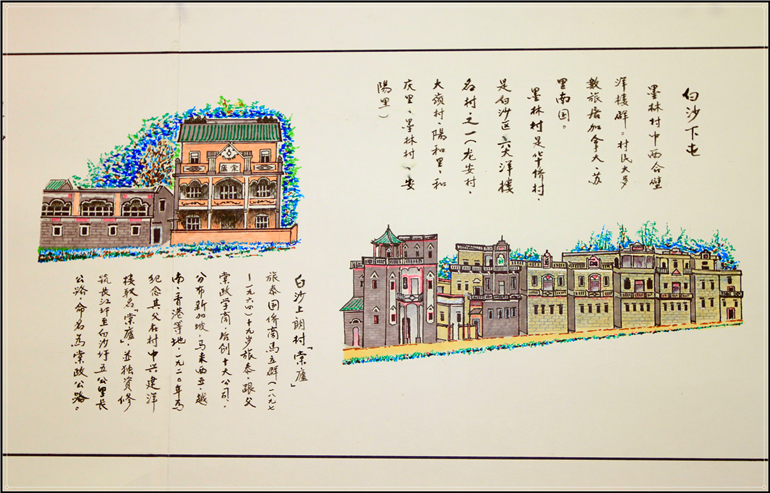 白沙下屯
墨林村中西合璧
洋樓群。村民大多
數旅居加拿大、苏
里南国。
墨林村是华侨村,
是白沙区六大洋樓
名村之一(龙安村、
大嶺村、陽和里、和
庆里、墨林村、安
陽里)
白沙上朗村「棠廬」
旅泰国侨商馬五群(一八九七
—一九六四)十九岁旅泰,跟父
棠政学商,后创十大公司,
分布新加坡、马来西亚、越
南、香港等地。一九二0年為
纪念其父在村中兴建洋
樓取名"棠廬",並独資修
筑長江圩至白沙圩五公里長
公路,命名為棠政公路。